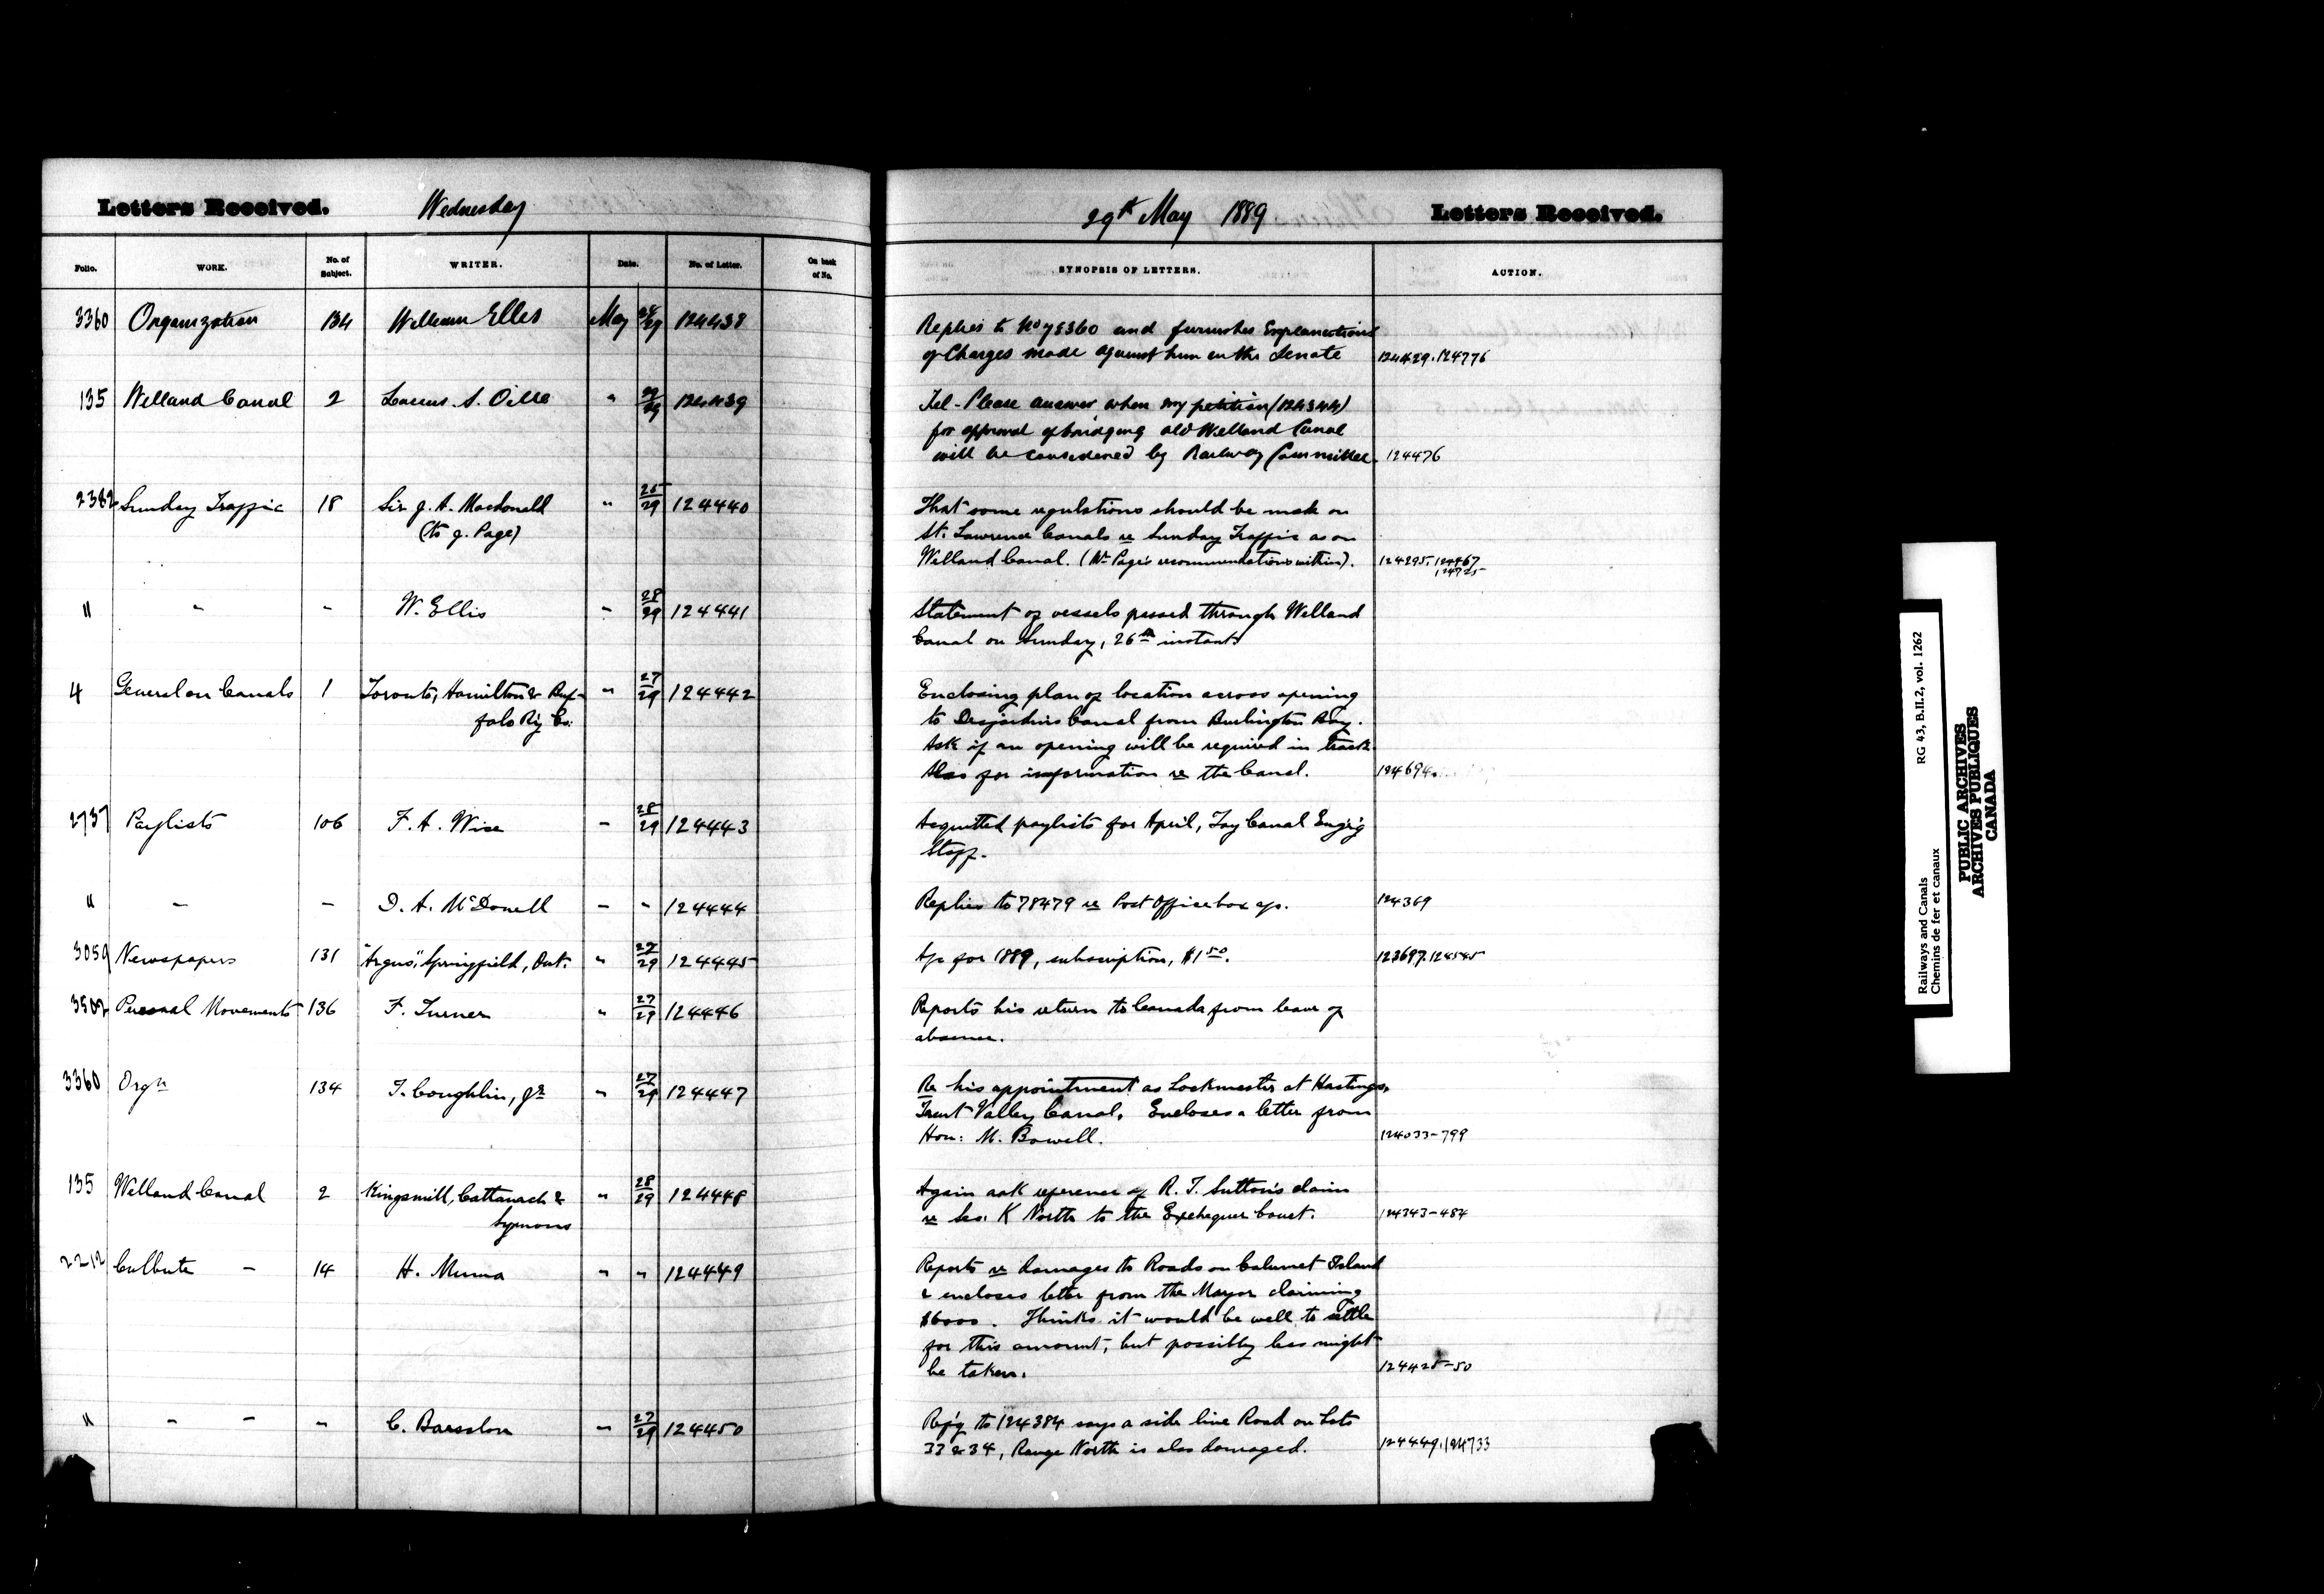 Letters Received. Wednesday 29th May 1889. Letters Received.
Folio. WORK. No. of Subject. WRITER. Date. No. of Letter. On back of No. SYNOPSIS OF LETTERS. ACTION.
3360 Organization 134 William Elles May 28/29 124438 Replies to No 78360 and furnishes Explanations
of Charges made against him in the Senate 124429.124776
135 Welland Canal 2 Lucius S. Oille " 29/29 124439 Tel-Please answer when my petition (124344)
for approval of bridging old Welland Canal
will be considered by Railway Committee. 124476
2382 Sunday Traffic 18 Sir J. A. Macdonald " 25/29 124440 That some regulations should be made on
(to J. Page) St. Lawrence Canals re Sunday Traffic as on
Welland Canal. (Mr Page's recommendations within). 124295.124467
124725
" " " W. Ellis " 28/29 124441 Statement of vessels passed through Welland
Canal on Sunday, 26th instant
4 General on Canals 1 Toronto, Hamilton & Buf- " 27/29 124442 Enclosing plan of location across opening
falo Ry Co: to Desjardins Canal from Burlington Bay.
Ask if an opening will be required in track
Also for information re the Canal. 124694
2737 Paylists 106 F. A. Wise " 28/29 124443 Acquitted paylists for April, Tay Canal Eng'g
Staff.
" " " D. A. McDonell " " 124444 Replies to 78479 re Post Office box a/c. 124369
3059 Newspapers 131 "Argus," Springfield, Ont. " 27/29 124445 A/c for 1889, subscription, $1.50. 123697.124545
3502 Personal Movements 136 F. Turner " 27/29 124446 Reports his return to Canada from leave of
absence.
3360 Orgn 134 T. Coughlin, Jr " 27/29 124447 Re his appointment as Lockmaster at Hastings,
Trent Valley Canal. Encloses a letter from
Hon: M. Bowell. 124033-799
135 Welland Canal 2 Kingsmill, Cattanach & " 28/29 124448 Again ask reference of R. T. Sutton's claim
Symons re Sec. K North to the Exchequer Court. 124343-484
2212 Culbute " 14 H. Muma " " 124449 Reports re Damages to Roads on Calumet Island
& encloses letter from the Mayor claiming
$6000. Thinks it would be well to settle
for this amount, but possibly less might
be taken. 124425-50
" " " " C. " 27/29 124450 Rep'g to 124384 says a side line Road on Lots
33 & 34, Range North is also damaged. 124449.124733
Railways and Canals RG 43, B.II.2, vol. 1262
Chemins de fer et canaux
PUBLIC ARCHIVES
ARCHIVES PUBLIQUES
CANADA